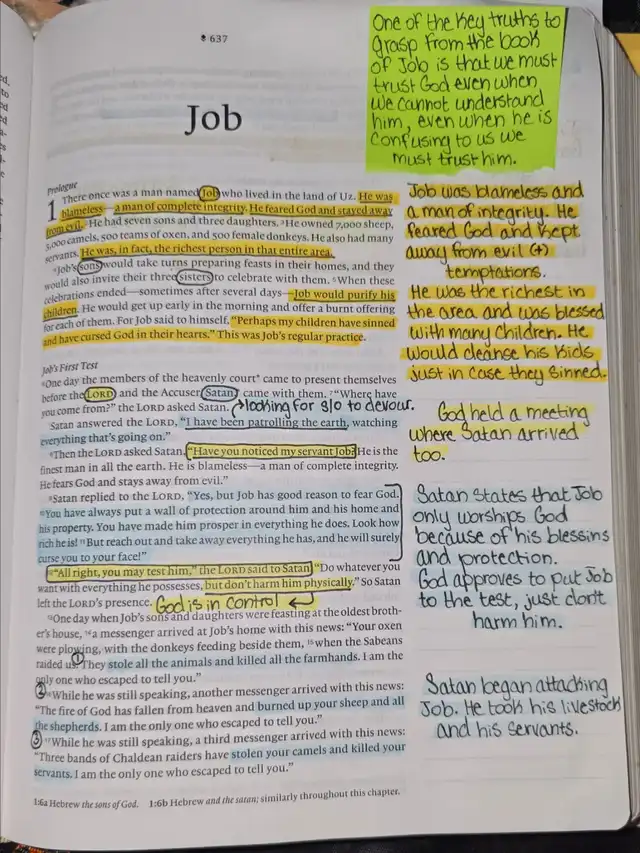 637
One of the key truths to
grasp from the book
of Job is that we must
trust God even when
we cannot understand
him, even when he is
confusing to us we
must trust him.
Job
Prologue
1 There once was a man named Job who lived in the land of Uz. He was
blameless—a man of complete integrity. He feared God and stayed away
from evil. ²He had seven sons and three daughters. ³He owned 7,000 sheep,
3,000 camels, 500 teams of oxen, and 500 female donkeys. He also had many
servants. He was, in fact, the richest person in that entire area.
⁴Job's sons would take turns preparing feasts in their homes, and they
would also invite their three sisters to celebrate with them. ⁵When these
celebrations ended—sometimes after several days—Job would purify his
children. He would get up early in the morning and offer a burnt offering
for each of them. For Job said to himself, "Perhaps my children have sinned
and have cursed God in their hearts." This was Job's regular practice.
Job was blameless and
a man of integrity. He
feared God and kept
away from evil (+)
temptations.
He was the richest in
the area and was blessed
with many children. He
would cleanse his kids
just in case they sinned.
Job's First Test
⁶One day the members of the heavenly court* came to present themselves
before the LORD, and the Accuser, Satan,* came with them. ⁷"Where have
you come from?" the LORD asked Satan. looking for s/o to devour.
Satan answered the LORD, "I have been patrolling the earth, watching
everything that's going on."
⁸Then the LORD asked Satan, "Have you noticed my servant Job? He is the
finest man in all the earth. He is blameless—a man of complete integrity.
He fears God and stays away from evil."
God held a meeting
where Satan arrived
too.
⁹Satan replied to the LORD, "Yes, but Job has good reason to fear God.
¹⁰You have always put a wall of protection around him and his home and
his property. You have made him prosper in everything he does. Look how
rich he is! ¹¹But reach out and take away everything he has, and he will surely
curse you to your face!"
¹²"All right, you may test him," the LORD said to Satan. "Do whatever you
want with everything he possesses, but don't harm him physically." So Satan
left the LORD's presence. God is in control
Satan states that Job
only worships God
because of his blessins
and protection.
God approves to put Job
to the test, just don't
harm him.
¹³One day when Job's sons and daughters were feasting at the oldest broth-
er's house, ¹⁴a messenger arrived at Job's home with this news: "Your oxen
were plowing, with the donkeys feeding beside them, ¹⁵when the Sabeans
raided us. 1 They stole all the animals and killed all the farmhands. I am the
only one who escaped to tell you."
2 ¹⁶While he was still speaking, another messenger arrived with this news:
"The fire of God has fallen from heaven and burned up your sheep and all
the shepherds. I am the only one who escaped to tell you."
3 ¹⁷While he was still speaking, a third messenger arrived with this news:
"Three bands of Chaldean raiders have stolen your camels and killed your
servants. I am the only one who escaped to tell you."
Satan began attacking
Job. He took his livestock
and his servants.
1:6a Hebrew the sons of God. 1:6b Hebrew and the satan; similarly throughout this chapter.